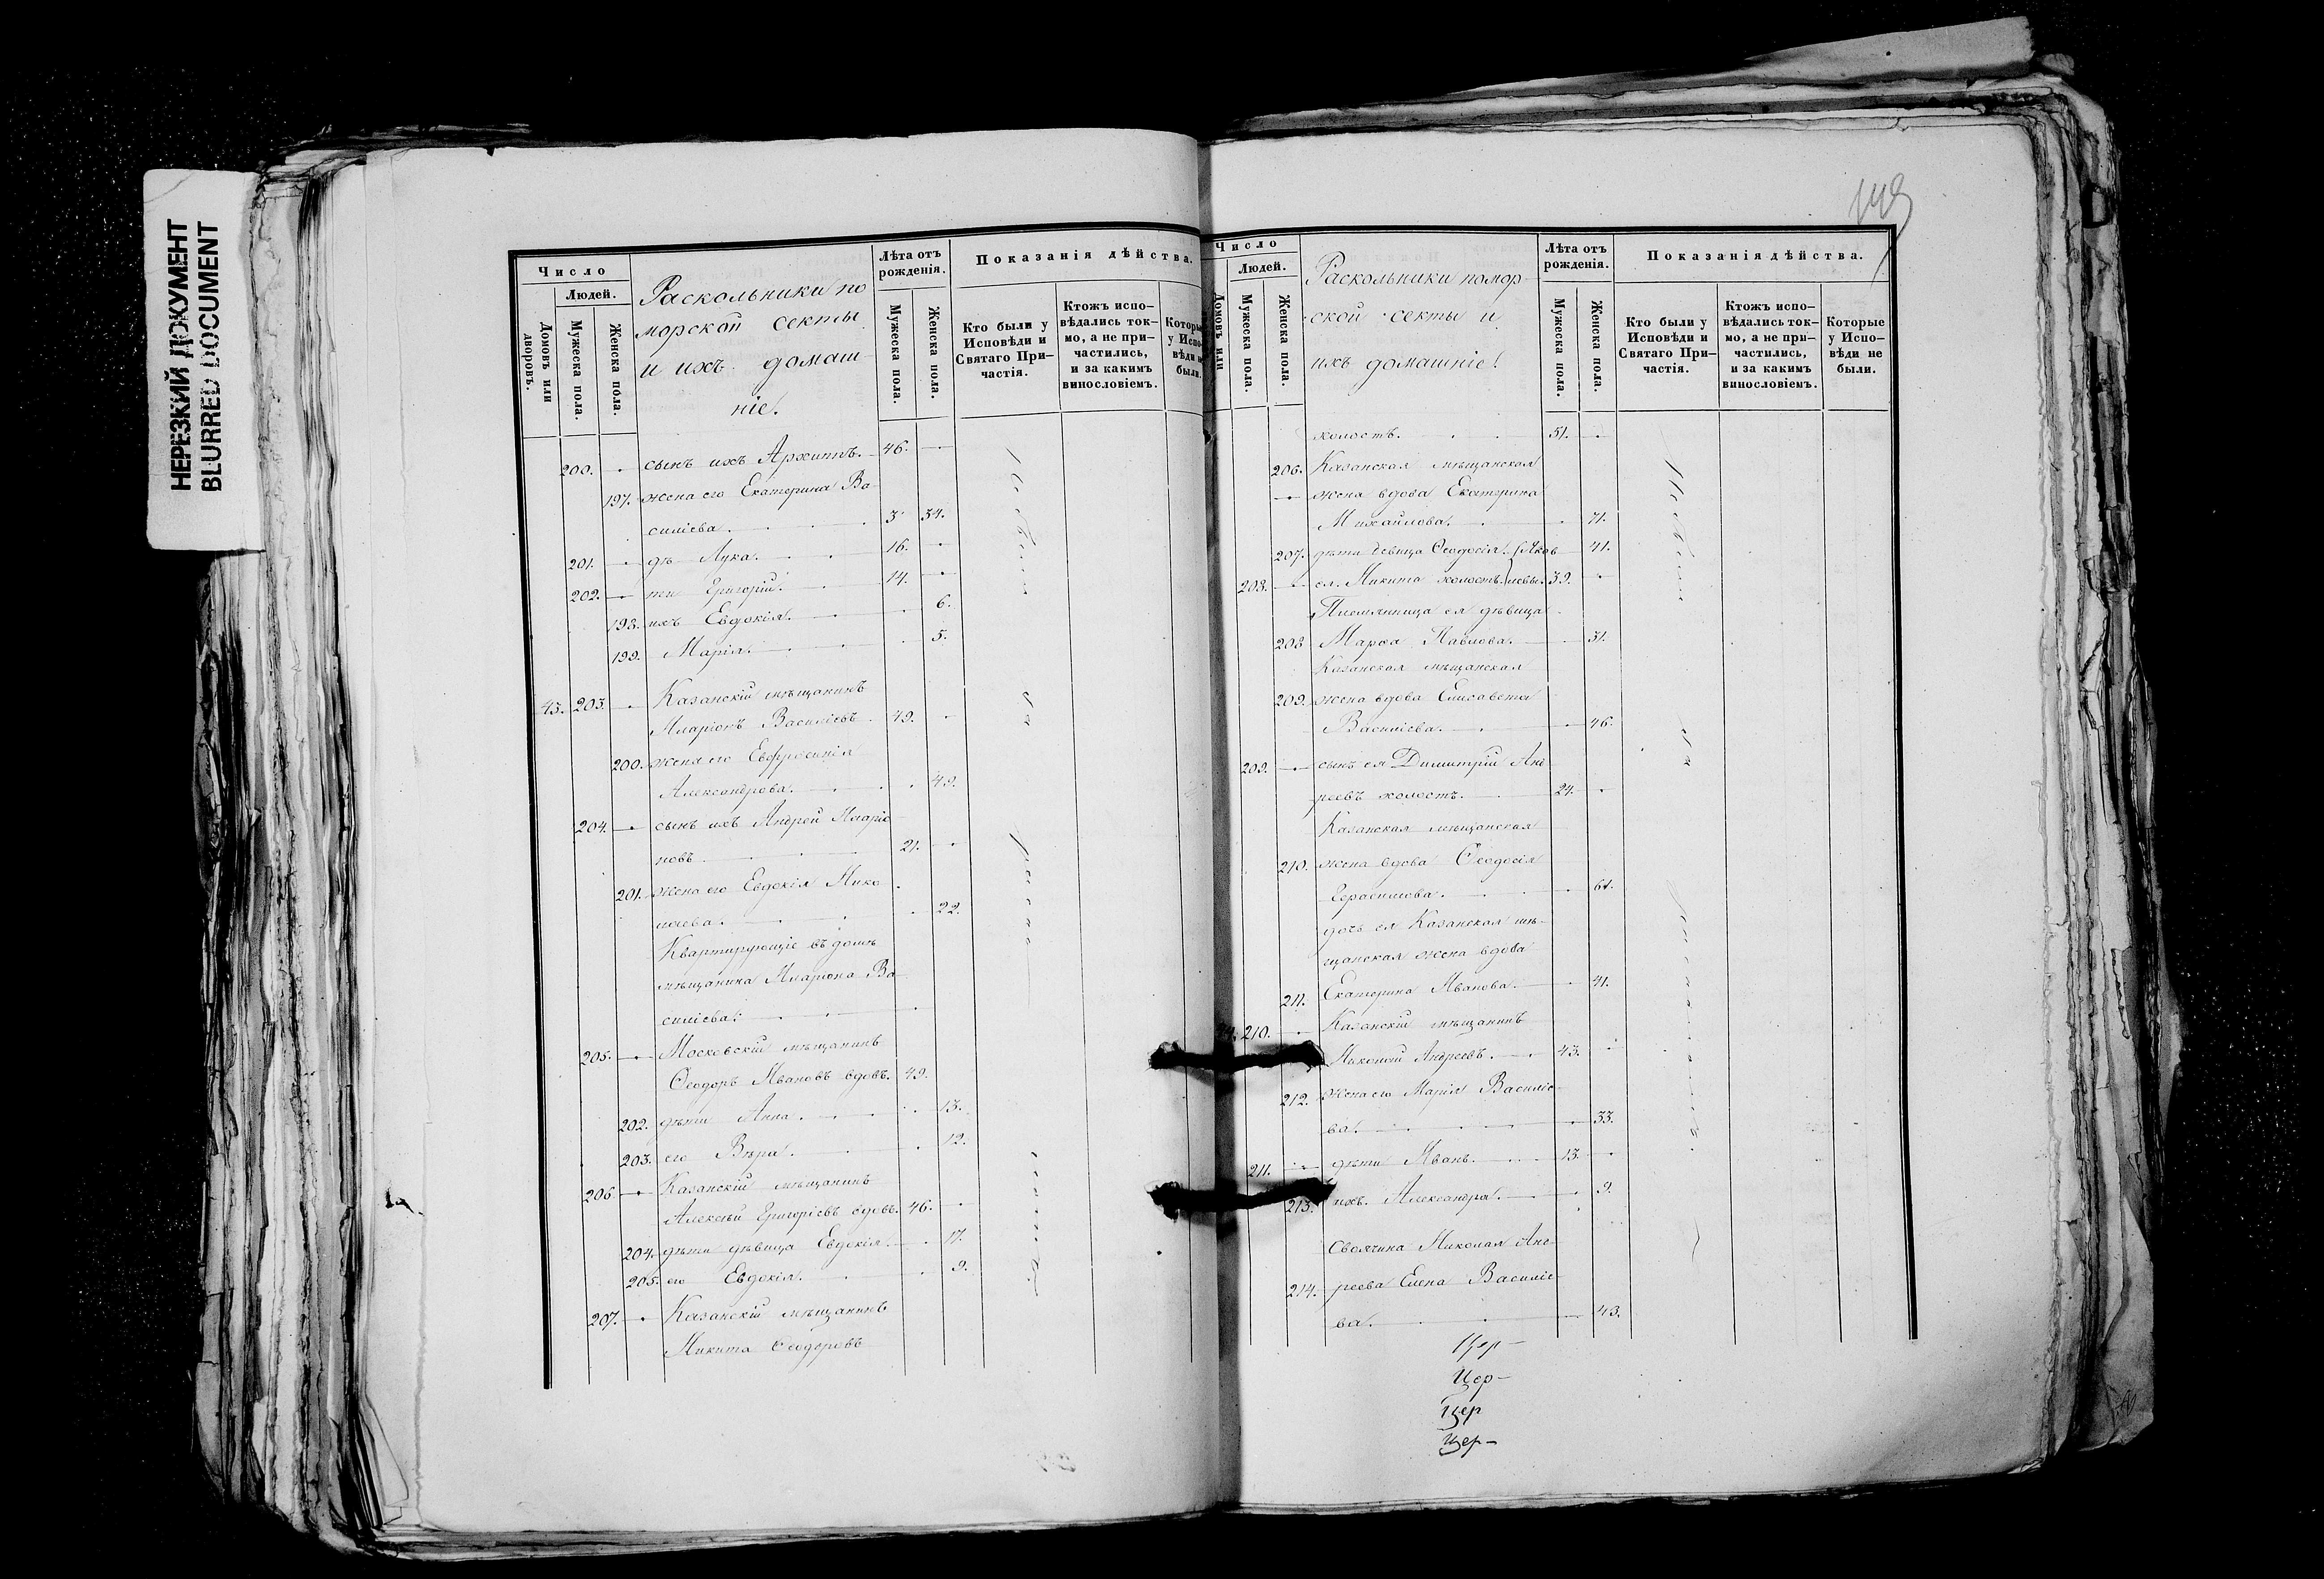 НЕРЕЗКИЙ ДОКУМЕНТ
BLURRED DOCUMENT
Число
Людей.
Домовъ или дворовъ.
Мужеска пола.
Женска пола.
Раскольники по
морской секты
и ихъ домаш-
ніе.
Лѣта отъ рожденія.
Мужеска пола.
Женска пола.
Показанія дѣйства.
Кто были у Исповѣди и Святаго При-частія.
Ктожъ испо-вѣдались ток-мо, а не при-частились, и за какимъ винословіемъ.
200. сынъ ихъ Архиппъ. 46.
197. жена его Екатерина Ва
силіева. 34.
201. дѣ Лука. 16.
202. ти Григорій. 14.
198. ихъ Евдокія. 6.
199. Марія. 5.
43. 203. Казанскій мѣщанинъ
Иларіонъ Василіевъ 49.
200. жена его Евфросинія
Александрова. 49.
204. сынъ ихъ Андрей Иларіо
новъ 21.
201. жена его Евдокія Нико
лаева. 22.
Квартирующіе въ домѣ
мѣщанина Иларіона Ва
силіева:
205. Московскій мѣщанинъ
Ѳеодоръ Ивановъ вдовъ. 49.
202. дѣти Анна. 13.
203. его Вѣра. 12.
206. Казанскій мѣщанинъ
Алексѣй Григоріевъ вдовъ. 46.
204. дѣти дѣвица Евдокія. 17.
205. его Евдокія. 9.
207. Казанскій мѣщанинъ
Никита Ѳеодоровъ
Число
Людей.
Домовъ или
Мужеска пола.
Женска пола.
Раскольники помор-
ской секты и
ихъ домашніе!
Лѣта отъ рожденія.
Мужеска пола.
Женска пола.
Показанія дѣйства.
Кто были у Исповѣди и Святаго При-частія.
Ктожъ испо-вѣдались ток-мо, а не при-частились, и за какимъ винословіемъ.
Которые у Испо-вѣди не были.
холостъ. 51.
206. Казанская мѣщанская
жена вдова Екатерина
Михайлова. 71.
207. дѣти девица Ѳеодосія. Яков 41.
208. ея. Никита холостъ. левы. 39.
Племянница ея дѣвица
208 Марѳа Павлова. 31.
Казанская мѣщанская
209. жена вдова Елисавета
Василіева. 46.
209. сынъ ея Димитрій Анд
реевъ холостъ. 24.
Казанская мѣщанская
210. жена вдова Ѳеодосія
Герасимова. 61.
дочь ея Казанская мѣ-
щанская жена вдова
211. Екатерина Иванова. 41.
44. 210. Казанскій мѣщанинъ
Николай Андреевъ. 43.
212. Жена его Марія Василіе
ва. 33.
211. дѣти Иванъ. 13.
213. ихъ. Александра. 9.
Своячина Николая Анд-
214. реева Елена Василіе-
ва. 43.
Цер-
Цер-
Цер
Цер-